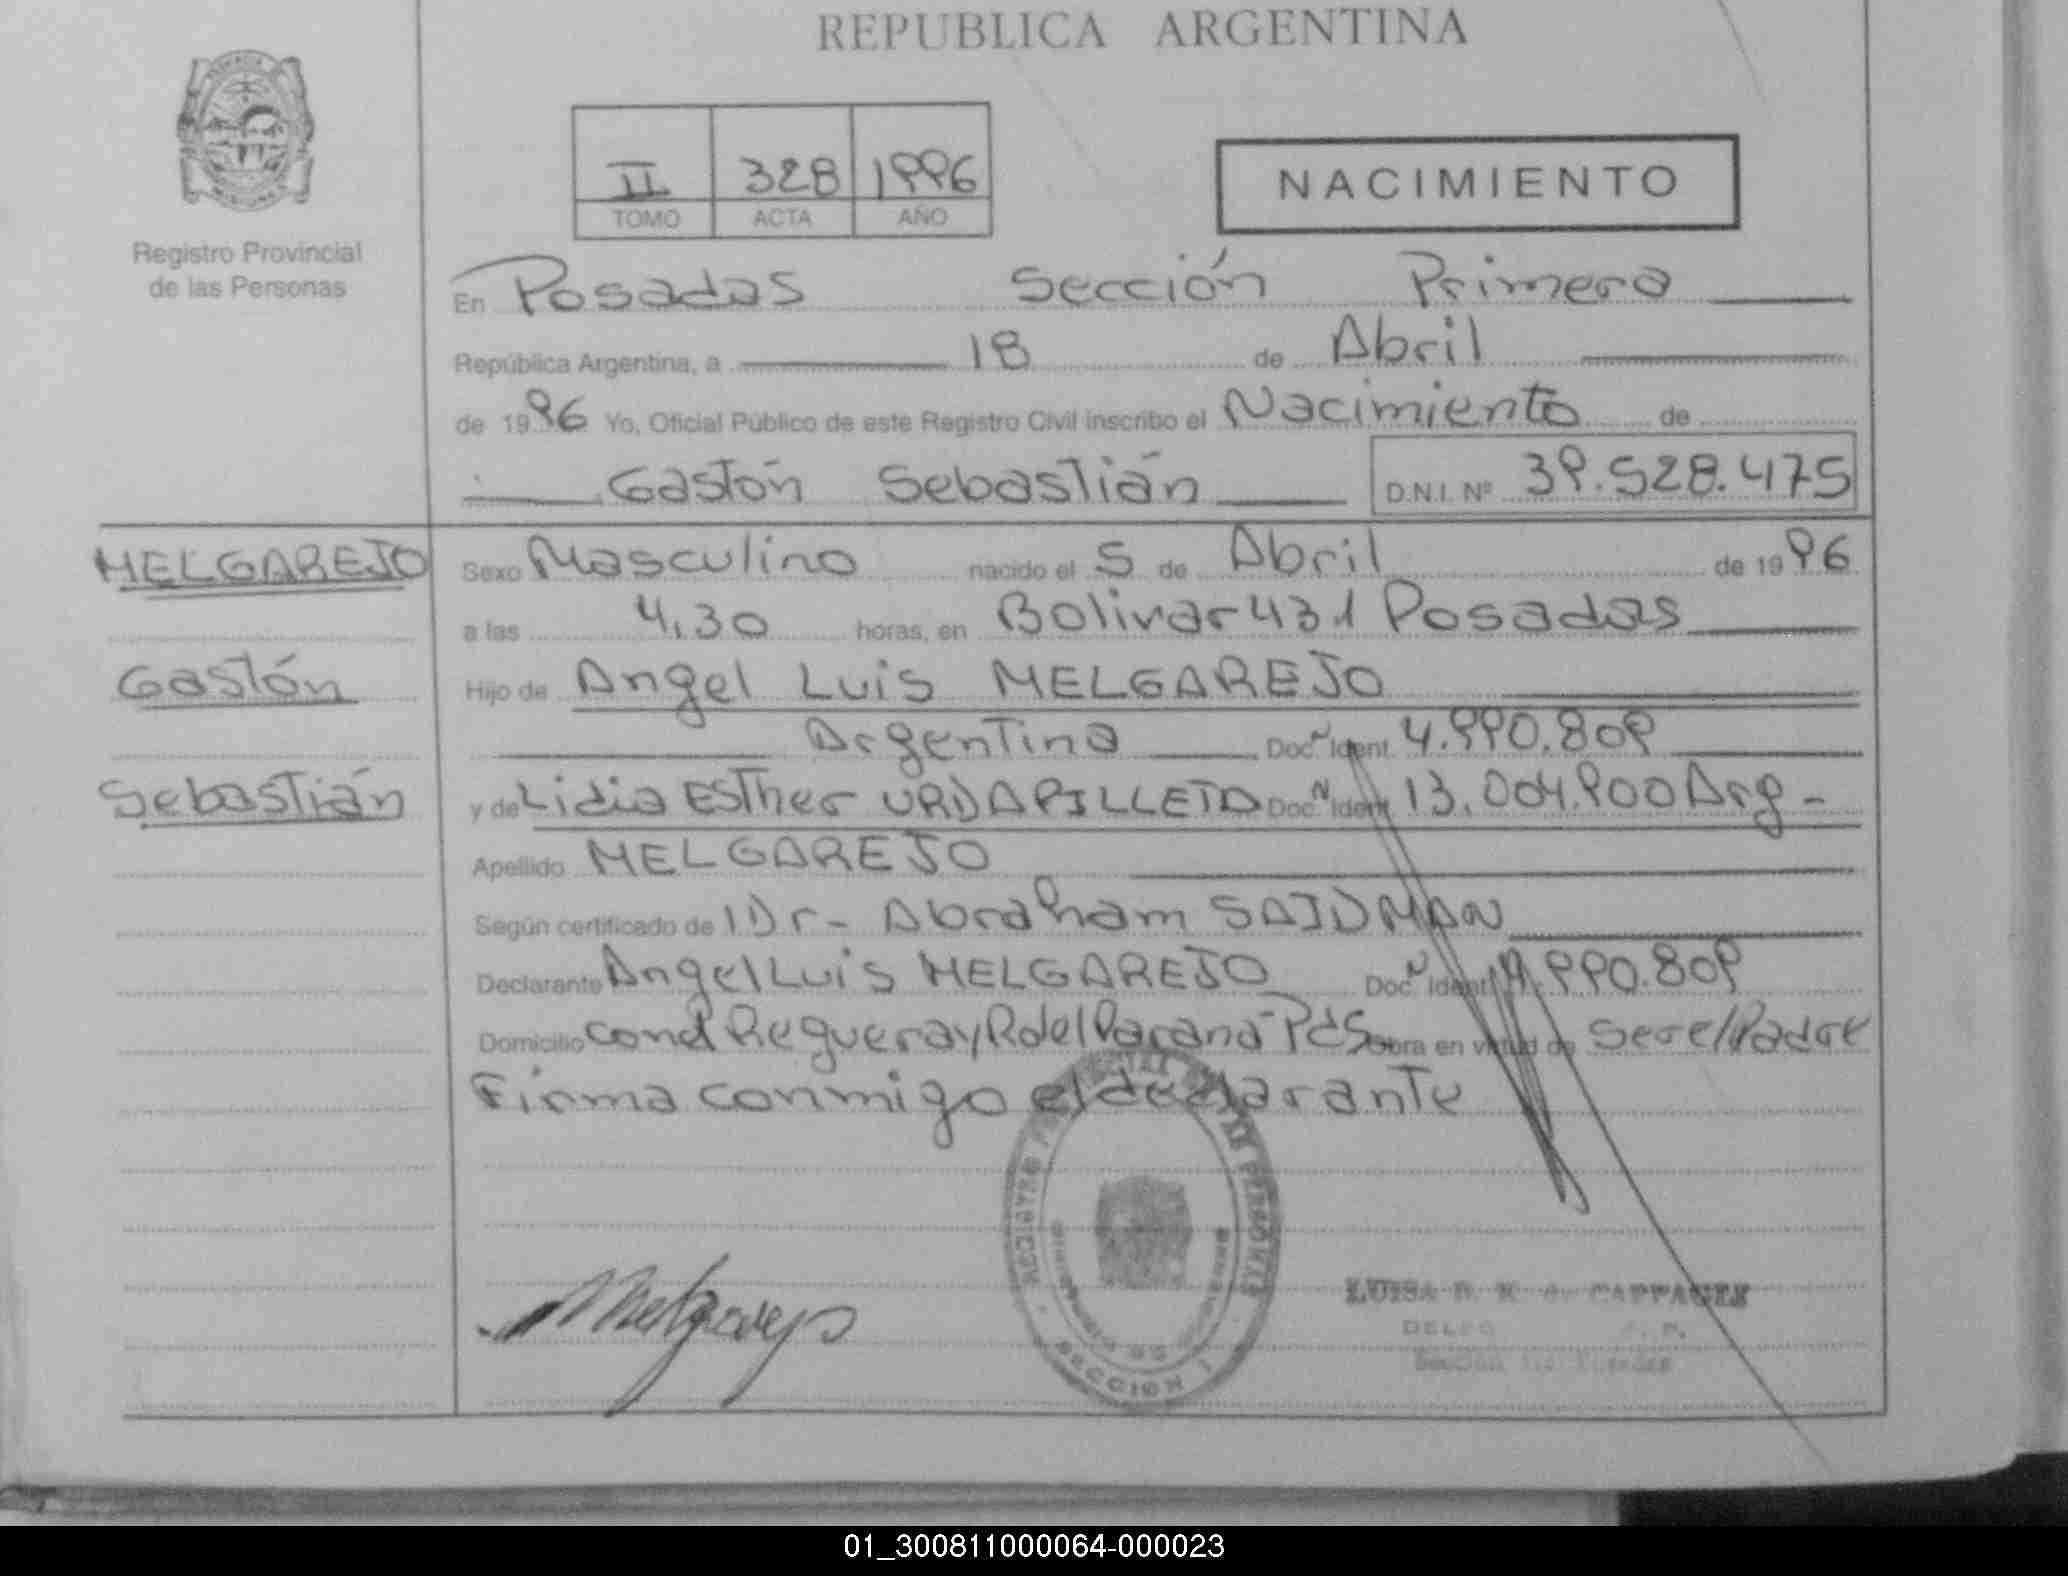 REPUBLICA ARGENTINA
II 328 1996
TOMO ACTA AÑO
NACIMIENTO
Registro Provincial
de las Personas
En Posadas Sección Primera
República Argentina, a 18 de Abril
de 1996 Yo, Oficial Público de este Registro Civil inscribo el Nacimiento de
Gastón Sebastián D.N.I. Nº 39.528.475
MELGAREJO
Gastón
Sebastián
Sexo Masculino nacido el 5 de Abril de 1996
a las 4,30 horas, en Bolivar 431 Posadas
Hijo de Angel Luis MELGAREJO
Argentina Doc. Ident. 4.990.809
y de Lidia Esther URDAPILLETA Doc. Ident. 13.004.900 Arg-
Apellido MELGAREJO
Según certificado de Dr- Abraham SAIDMAN
Declarante Angel Luis MELGAREJO Doc. Ident. 4.990.809
Domicilio Regueray R del Parana Pds Obra en virtud de Ser el Padre
Firma conmigo el declarante
Melgarejo
SECCION 1
LUISA
01_300811000064-000023